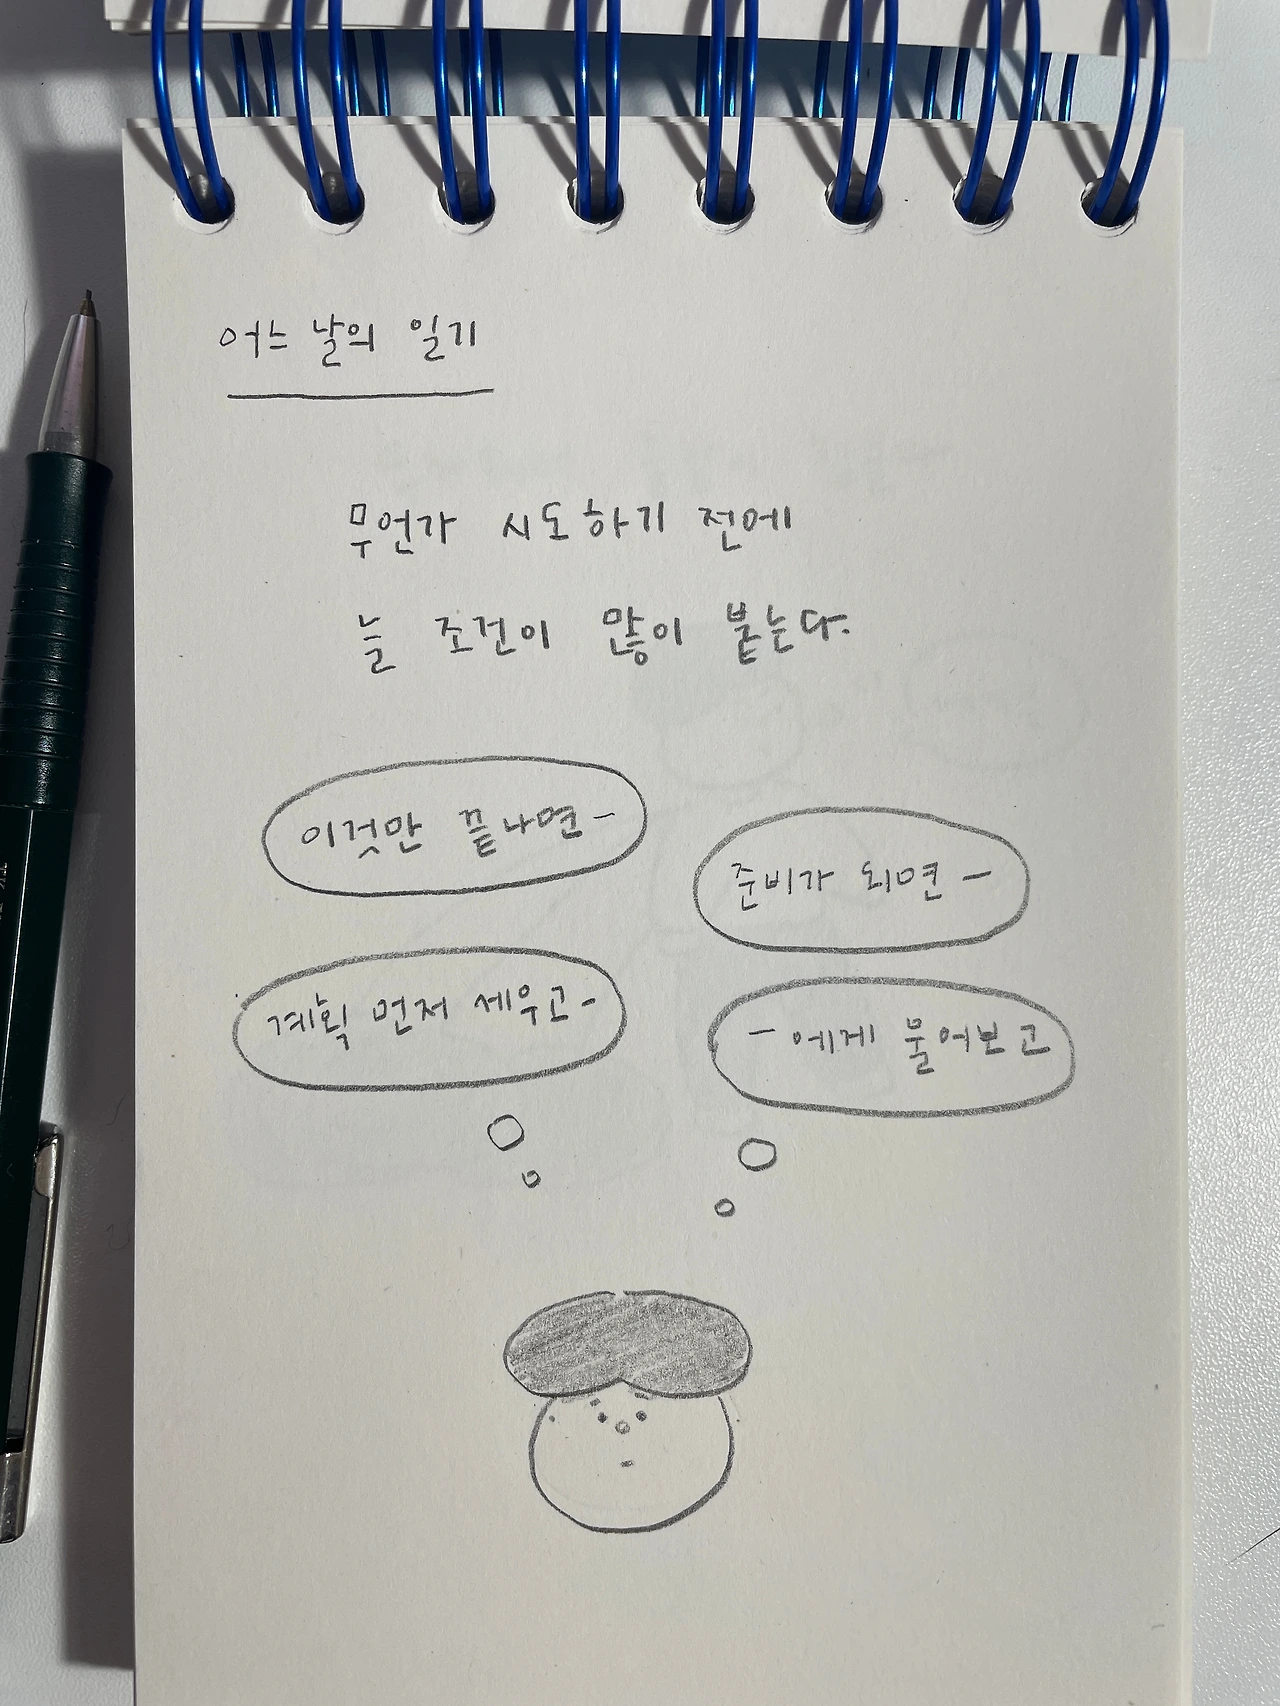 어느 날의 일기
무언가 시도하기 전에
늘 조건이 많이 붙는다.
이것만 끝나면-
준비가 되면-
계획 먼저 세우고-
-에게 물어보고